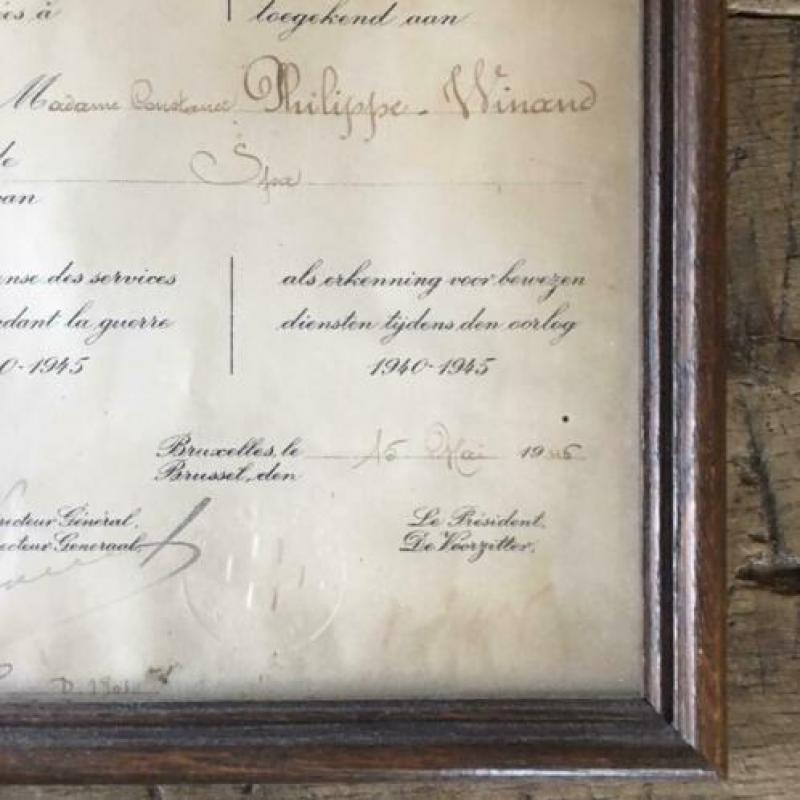 és à toegekend aan
Madame Constance Philippe-Winand
de Spa
van
ense des services als erkenning voor bewezen
ndant la guerre diensten tijdens den oorlog
0-1945 1940-1945
Bruxelles, le 15 Mai 1946
Brussel, den
recteur Général, Le Président,
ecteur Generaal, De Voorzitter,